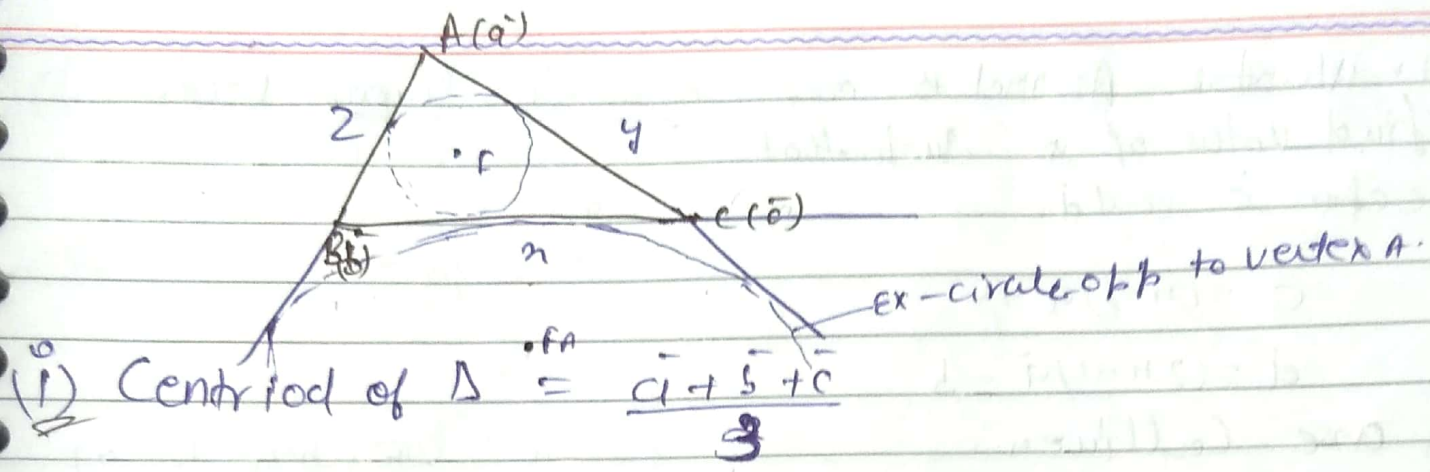 A(ā)
z
y
.I
B(b̄)
x
C(c̄)
Ex-circle opp to vertex A.
.EA
(i) Centriod of Δ = ā + b̄ + c̄
3